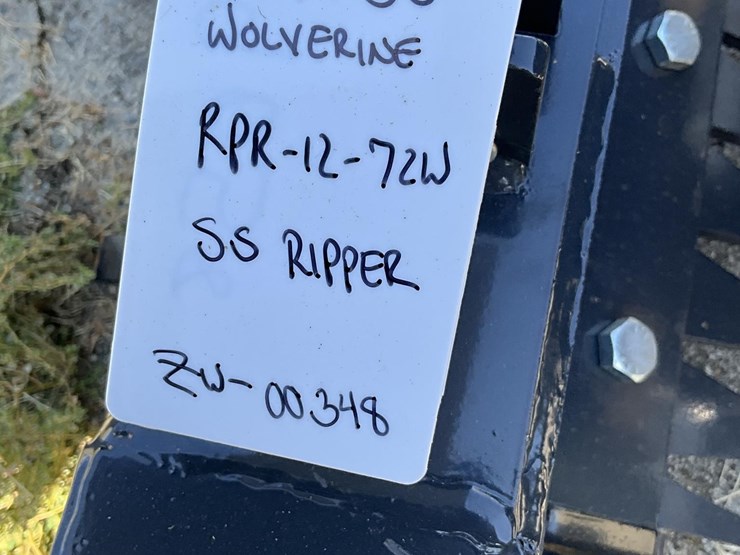 WOLVERINE
RPR-12-72W
SS RIPPER
ZW-00348